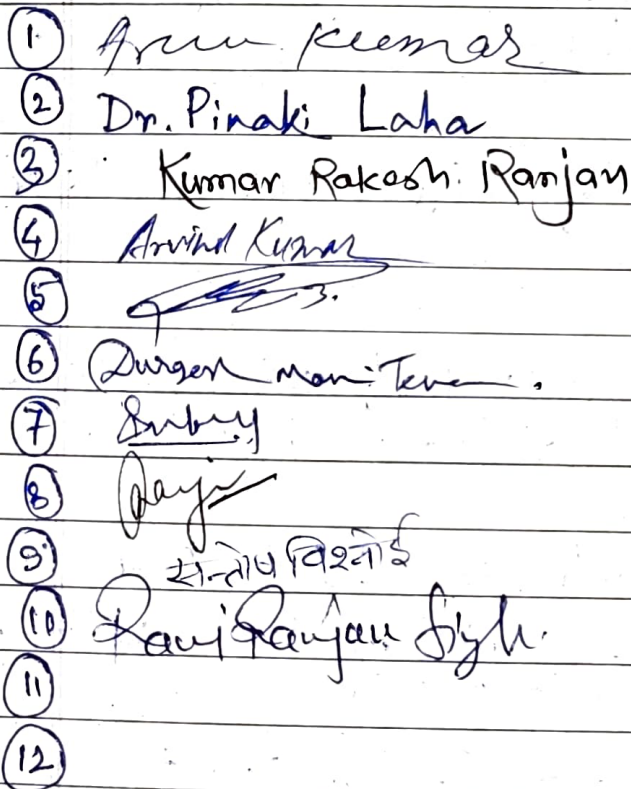 1 Arun Kumar
2 Dr. Pinaki Laha
3 Kumar Rakesh Ranjan
4 Arvind Kumar
5
6 Durgesh Mani
7
8
9 सन्तोष विश्नोई
10 Ravi Ranjan Singh.
11
12